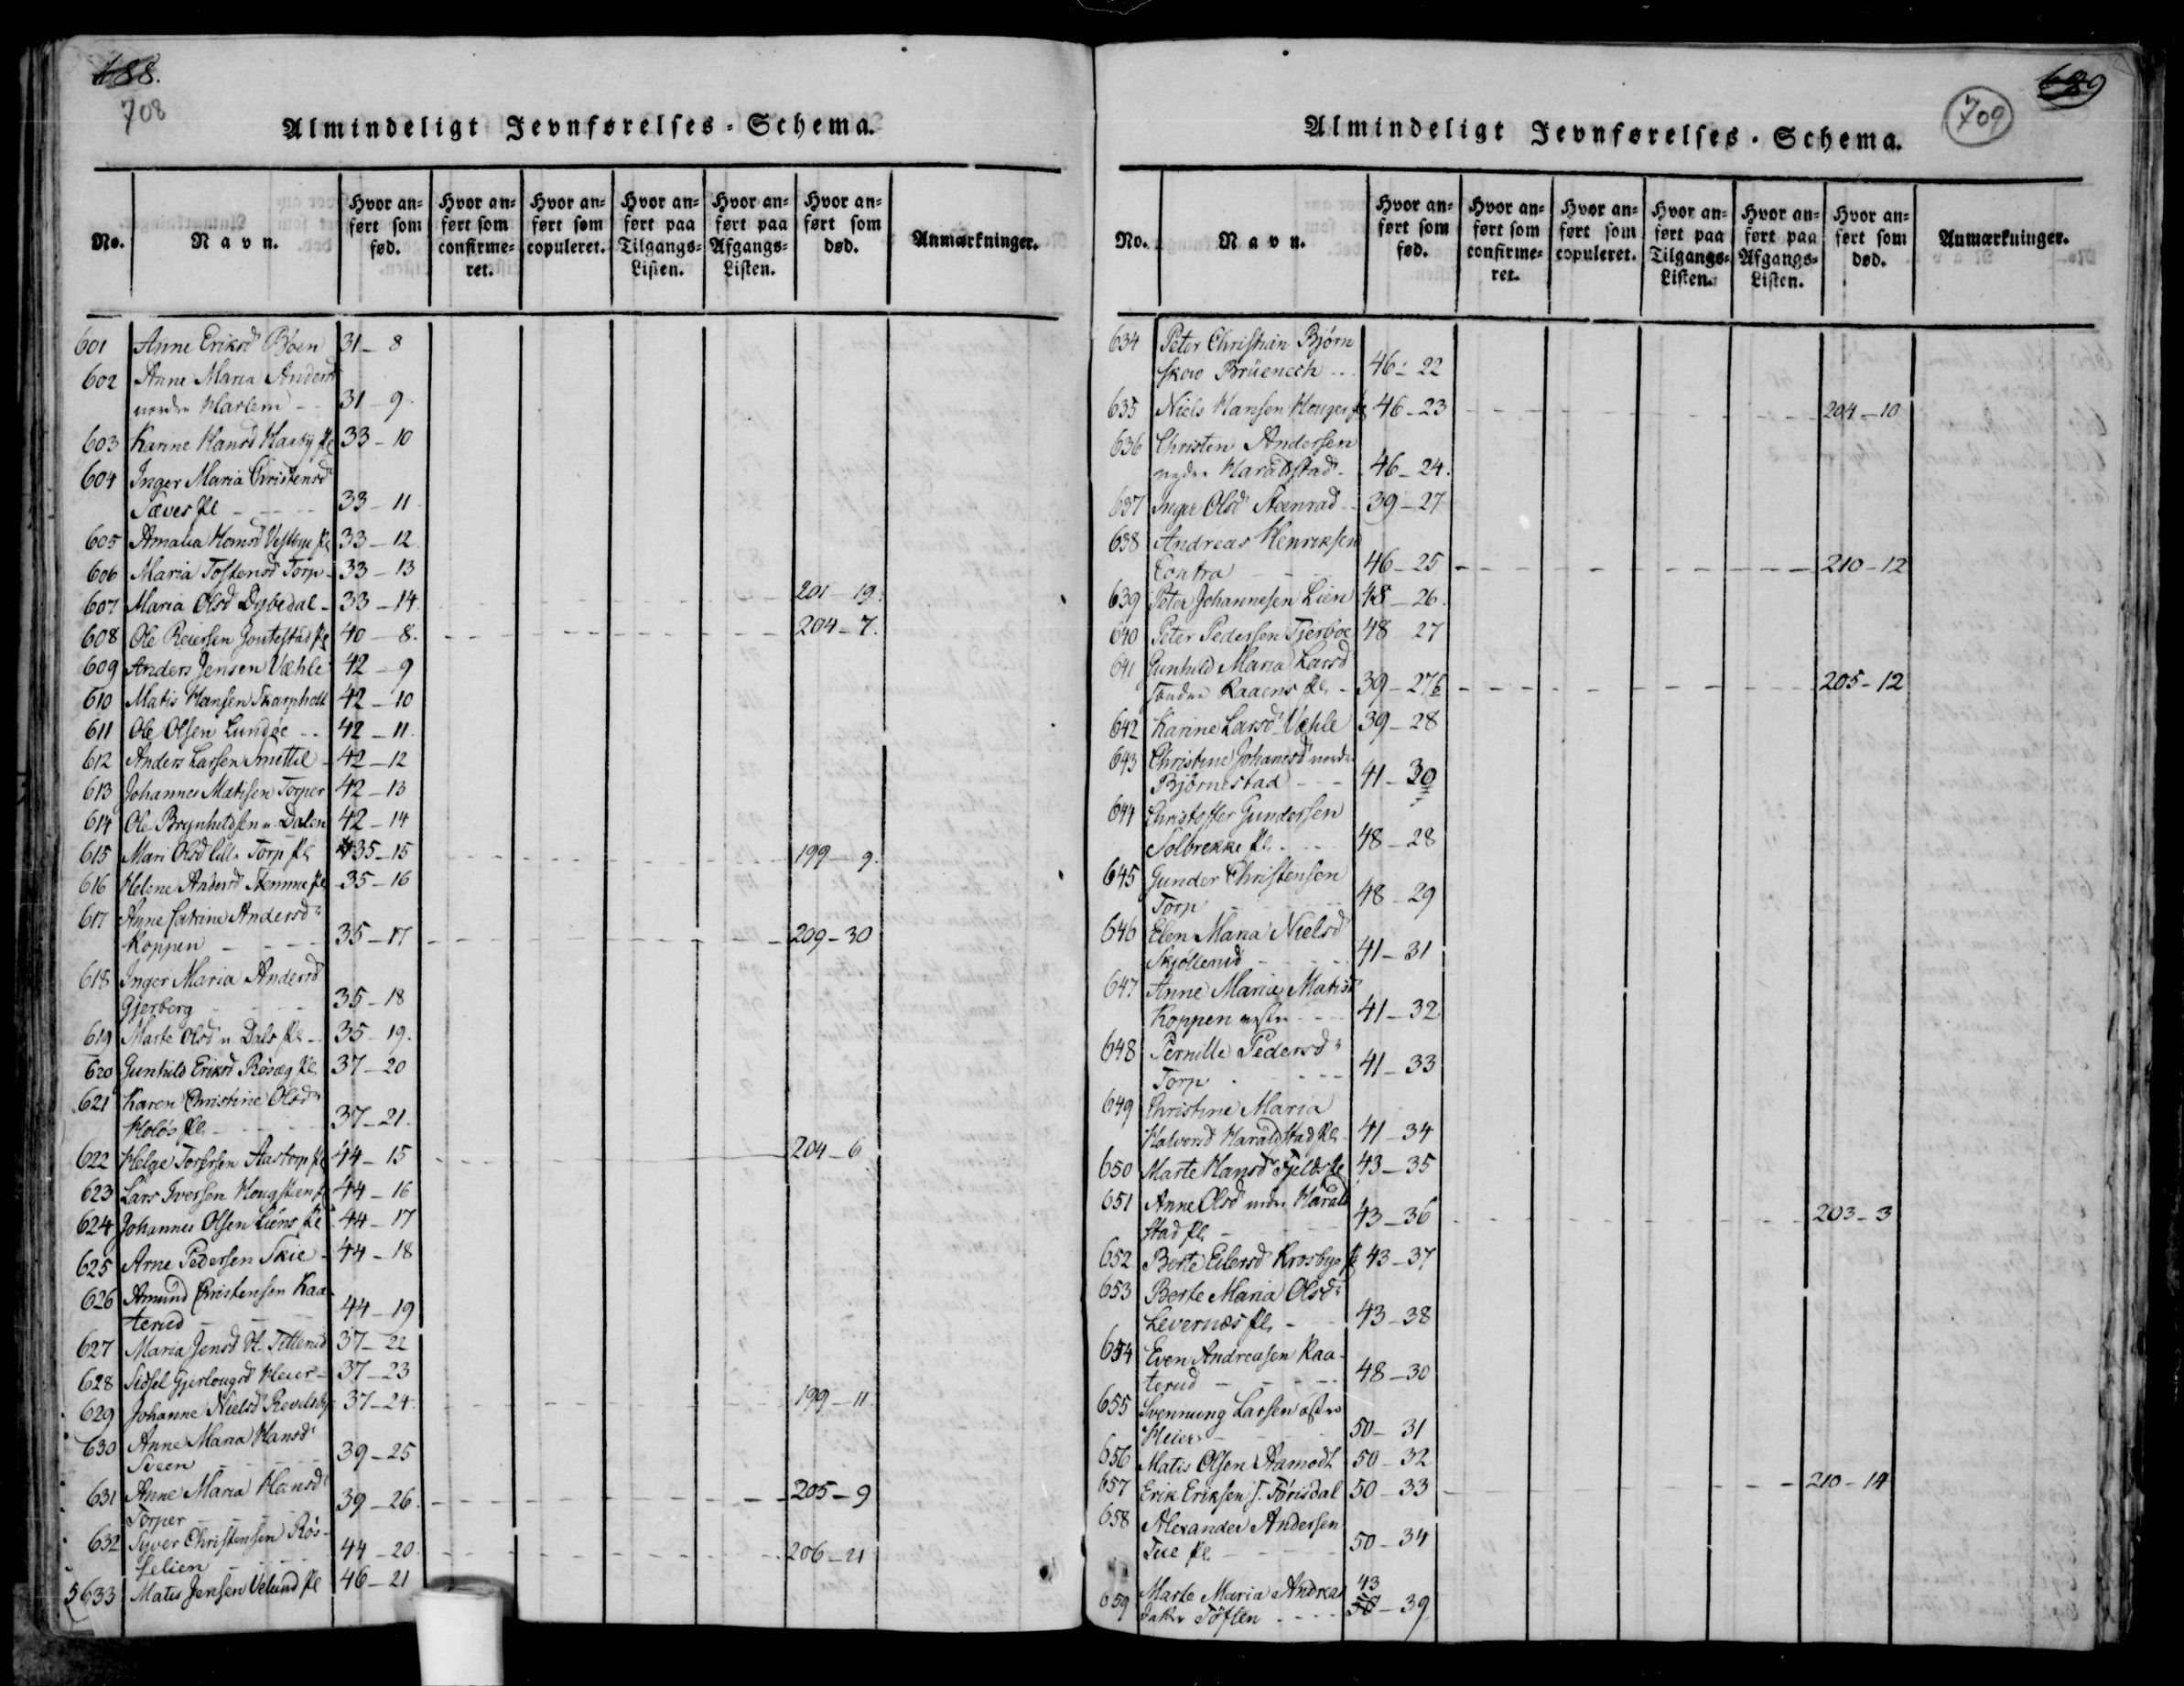 688.
708
Almindeligt Jevnførelses-Schema.
No.
Navn.
Hvor anført som fød.
Hvor anført som confirmeret.
Hvor anført som copuleret.
Hvor anført paa Tilgangs-Listen.
Hvor anført paa Afgangs-Listen.
Hvor anført som død.
Anmærkninger.
601 Anne Eriksd Böen 31-8
602 Anne Maria Andersd
nordre Harlem - 31-9
603 Karine Hansd Haaby Pl 33-10
604 Inger Maria Christensd
Sæves Pl - 33-11
605 Amalia Hansd Vestbye Pl 33-12
606 Maria Tostensd Torp - 33-13
607 Maria Olsd Dybedal - 33-14 201-19.
608 Ole Reiersen Jontestad Pl 40-8. 204-7.
609 Anders Jensen Væhle 42-9
610 Matis Hansen Skarpholt 42-10
611 Ole Olsen Lundöe 42-11
612 Anders Larsen Smittil 42-12
613 Johannes Matisen Torper 42-13
614 Ole Brynhildsen n. Dalen 42-14
615 Mari Olsd lille Torp Pl 35-15 199-9.
616 Helene Andersd Stemme Pl 35-16
617 Anne Catrine Andersd
Koppen - 35-17 209-30
618 Inger Maria Andersd
Gjerberg 35-18
619 Marte Olsd n. Dals Pl - 35-19.
620 Gunhild Eriksd Rösæg Pl 37-20
621 Karen Christine Olsd
Holös Pl - 37-21.
622 Helge Torersen Aastorp Pl 44-15 204-6
623 Lars Iversen Hougsteen Pl 44-16
624 Johannes Olsen Liens Pl 44-17
625 Arne Pedersen Skie - 44-18
626 Amund Christensen Kaa
terud - 44-19
627 Maria Jensd Titterud 37-22
628 Sidsel Gjerlougsd Heier - 37-23
629 Johanne Nielsd Revelsby 37-24. 199-11.
630 Anne Maria Hansd
Sveen 39-25
631 Anne Maria Hansd
Torper 39-26. 205-9
632 Syver Christensen Rös-
selien 44-20. 206-21
633 Matis Jensen Velund Pl 46-21
689
709
Almindeligt Jevnførelses-Schema.
No.
Navn.
Hvor anført som fød.
Hvor anført som confirmeret.
Hvor anført som copuleret.
Hvor anført paa Tilgangs-Listen.
Hvor anført paa Afgangs-Listen.
Hvor anført som død.
Anmærkninger.
634 Peter Christian Bjørn
skow Brüenech 46-22
635 Niels Hansen Houger Pl 46-23 204-10
636 Christen Andersen
nedre Haraldstad - 46-24.
637 Inger Olsd Steenrad 39-27
638 Andreas Henriksen
Contra 46-25 210-12
639 Peter Johannesen Lien 48-26.
640 Peter Pedersen Tjerboe 48-27
641 Gunhild Maria Larsd
søndre Raaens Pl - 39-27b 205-12
642 Karine Larsd Væhle 39-28
643 Christine Johansd nordre
Bjørnestad - 41-30
644 Christoffer Gundersen
Solbrekke Pl. 48-28
645 Gunder Christensen
Torp 48-29
646 Elen Maria Nielsd
Skjöllerud 41-31
647 Anne Maria Matisd
Koppen østre 41-32
648 Pernille Pedersd
Torp 41-33
649 Christine Maria
Halvorsd Haraldstad Pl 41-34
650 Marte Hansd Fjelds Pl 43-35
651 Anne Olsd nedre Harald
stad Pl 43-36 203-3
652 Berte Eilersd Krosbye Pl 43-37
653 Berte Maria Olsd
Levernæs Pl. - 43-38
654 Even Andreasen Kaa-
terud - 48-30
655 Svennung Larsen østre
Heier 50-31
656 Matis Olsen Aamodt 50-32
657 Erik Eriksen s. Förisdal 50-33 210-14
658 Alexander Andersen
Tue Pl 50-34
659 Marte Maria Andreas
datter Töften 43-39